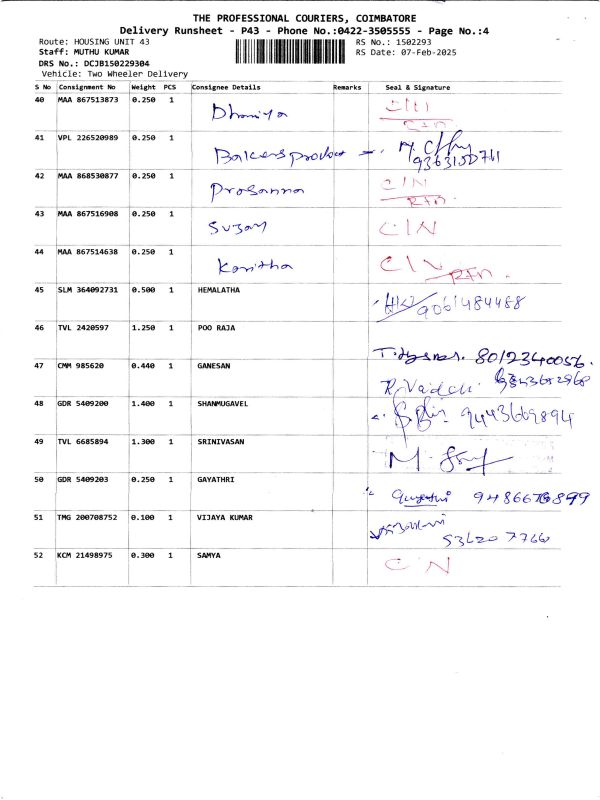 THE PROFESSIONAL COURIERS, COIMBATORE
Delivery Runsheet - P43 - Phone No.:0422-3505555 - Page No.:4
Route: HOUSING UNIT 43
RS No.: 1502293
Staff: MUTHU KUMAR
RS Date: 07-Feb-2025
DRS No.: DCJB150229304
Vehicle: Two Wheeler Delivery
S No Consignment No Weight PCS Consignee Details Remarks Seal & Signature
40 MAA 867513873 0.250 1 Dhaniya
41 VPL 226520989 0.250 1 Bakers product
42 MAA 868530877 0.250 1 Prasanna C/N
43 MAA 867516908 0.250 1 Sujay C/N
44 MAA 867514638 0.250 1 Kavitha C/N
45 SLM 364092731 0.500 1 HEMALATHA 9061484488
46 TVL 2420597 1.250 1 POO RAJA 8012340056.
47 CMM 985620 0.440 1 GANESAN
48 GDR 5409200 1.400 1 SHANMUGAVEL
49 TVL 6685894 1.300 1 SRINIVASAN
50 GDR 5409203 0.250 1 GAYATHRI Gayathri
51 TMG 200708752 0.100 1 VIJAYA KUMAR
52 KCM 21498975 0.300 1 SAMYA C N